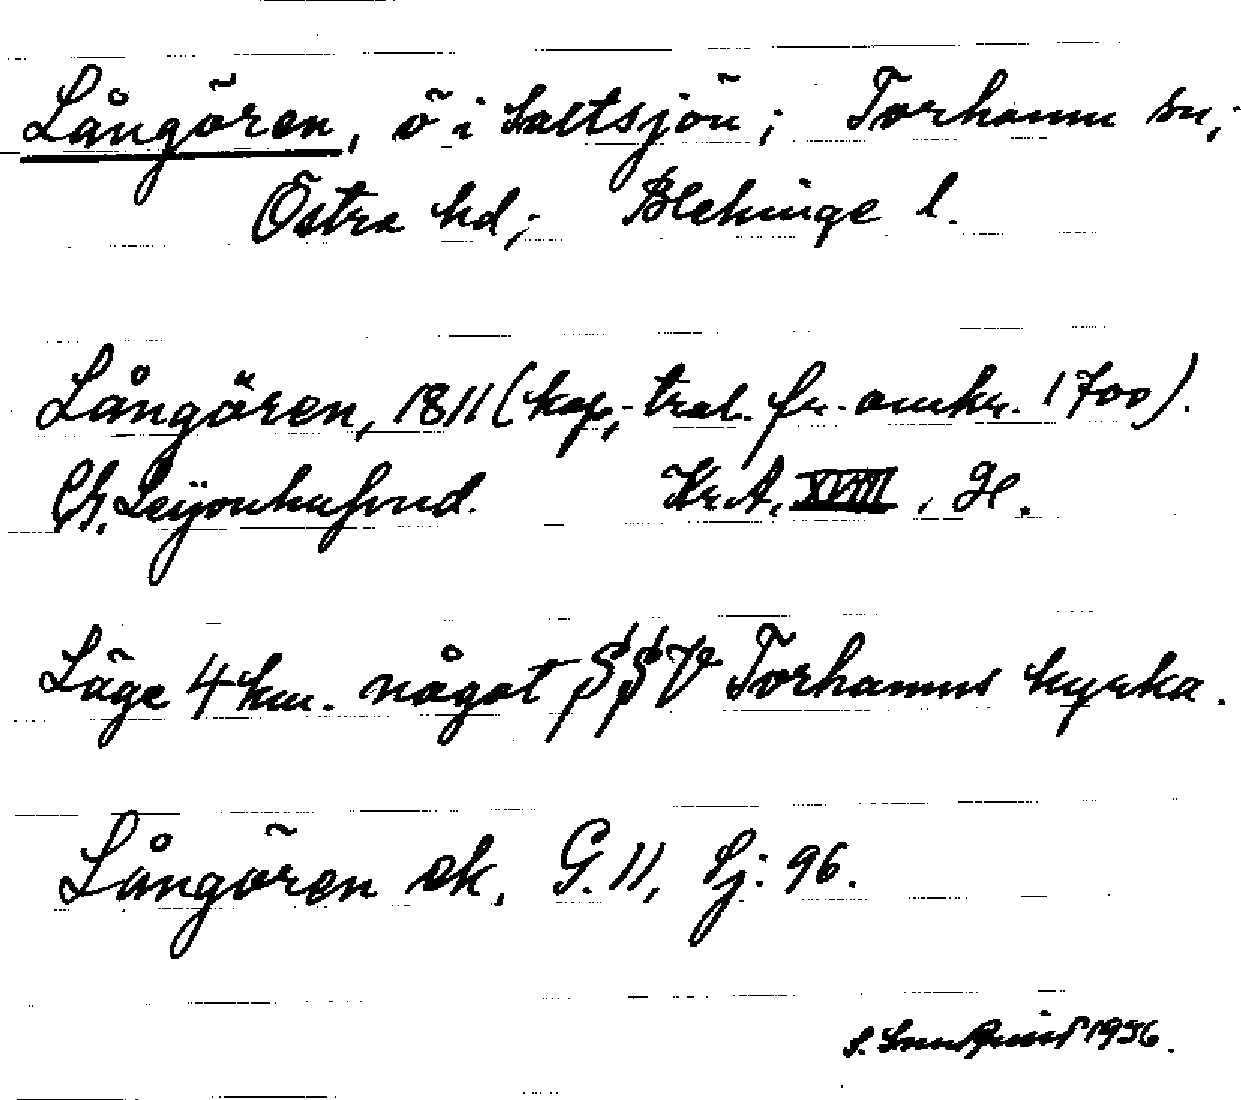 Långören, ö i Saltsjön; Torhamn sn;
Östra hd; Blekinge l.
Långören, 1811 (kop, tral. fr. omkr. 1700).
Ch. Leijonhufvud. KrA, XVIII, H.
Läge 4 km. något SSV Torhamns kyrka.
Långören ek. G. 11, Sj: 96.
S. 1956.